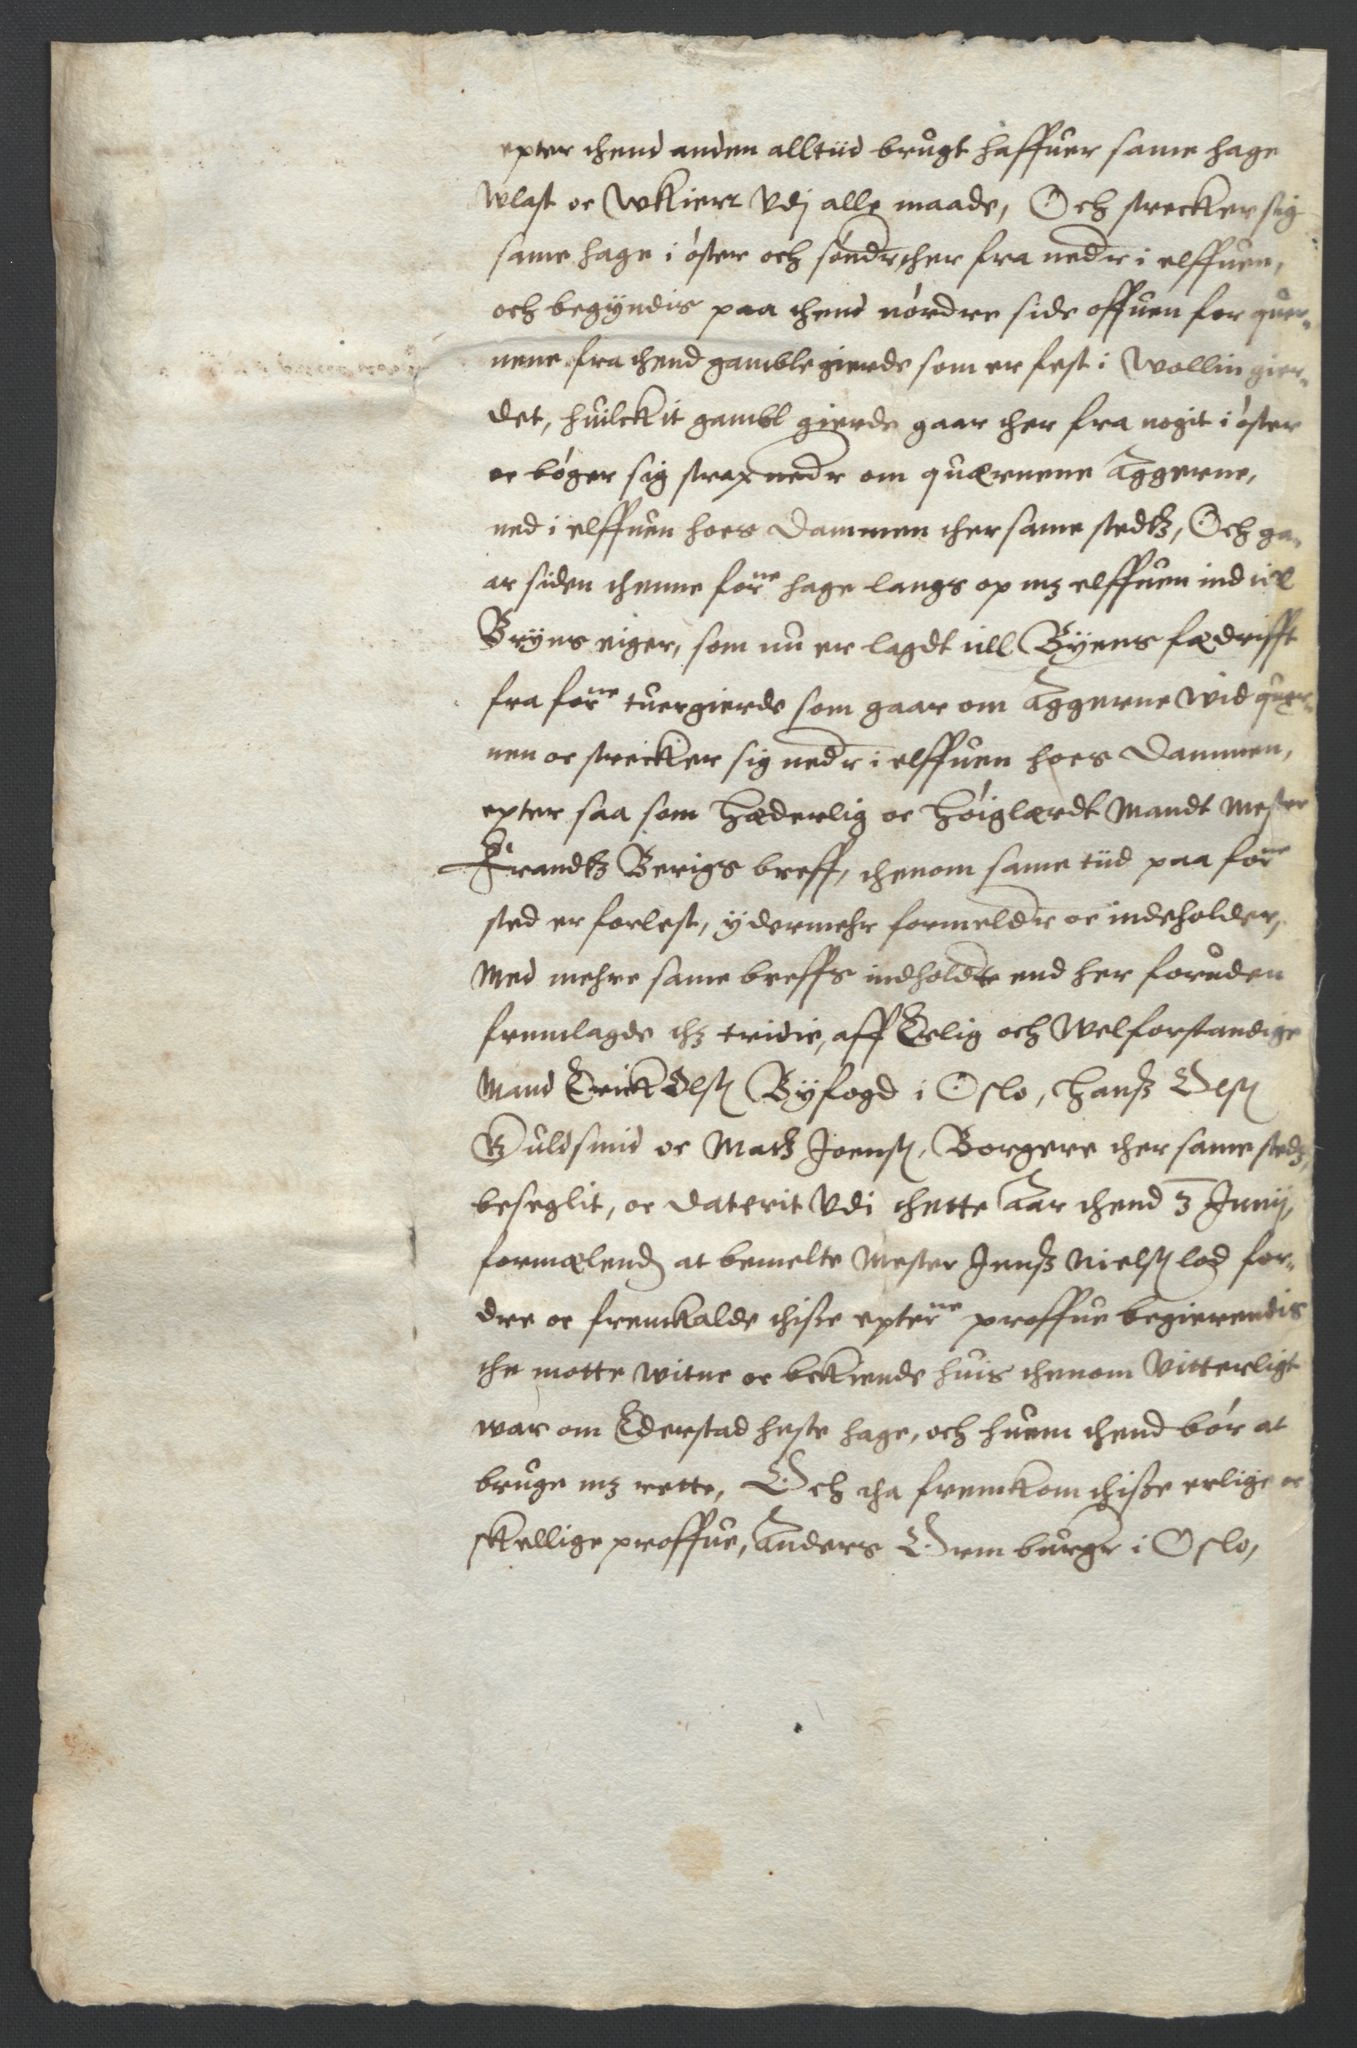 epter thend anden alltiid brugt haffuer same hage
wlast oc wkiert vdj alle maade, Och strecker sig
same hage i øster och sønder, ther fra neder i elffuen,
och begyndis paa thend nørdre side offuen for quer-
nene fra thend gamble gierde som er fest i Wollin gier-
det, huilckit gambl gierde gaar ther fra nogit i øster
oc bøger sig strax neder om quernene Aggerne,
ned i elffuen hoes Dammen ther same stedtz, Och ga-
ar siden thenne forne hage langs op mz elffuen ind till
Bryns eiger, som nu er lagdt till Byens fædrifft
fra forne tuergierde som gaar om Aggerne wid quer-
nen oc strecker sig neder i elffuen hoes Dammen,
epter saa som Hæderlig oc Høiglærdt Mandt Mester
Frandtz Berigs breff, thenom same tiid paa forne
sted er forlest, ydermehr formelder oc indeholder,
Med mehre same breffs indholdt end her foruden
fremlagde thz tridie, aff Erlig och Welforstandige
Mand Erick Olsen Byfogd i Oslo, Hanss Olsen
Guldsmid oc Matz Joensen, Borgere ther same stedtz,
beseglit, oc daterit vdi thette Aar thend 3 Junij,
formelendes at bemelte Mester Jenss Nielsen lod for-
dre oc fremkalde thisse epterne proffue begierendis
the motte witne oc bekiende huis thenom vitterligt
war om Ederstad heste hage, och huem thend bør at
bruge mz rette, Och tha fremkom thisse erlige oc
skellige proffue, Anders Orm burger i Oslo,